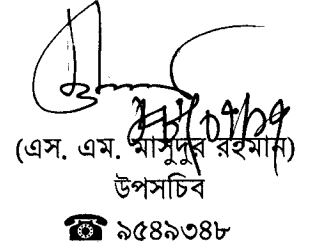 (এস. এম. মাসুদুর রহমান)
উপসচিব
☎ ৯৫৪৯৩৪৮